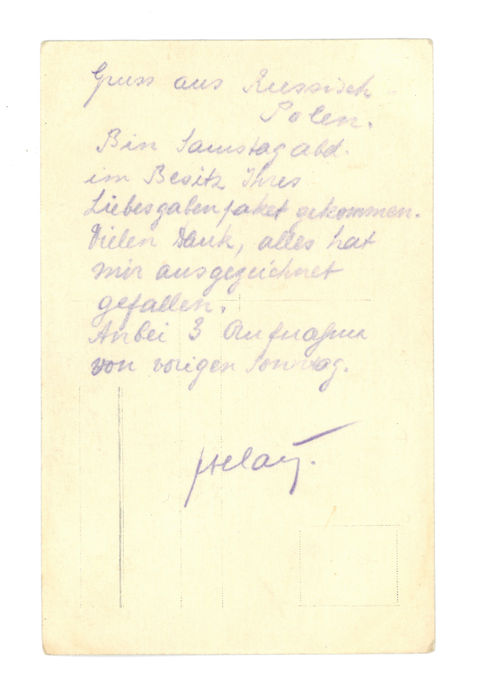 Gruss aus Russisch
Polen.
Bin Samstag abd.
im Besitz Ihres
Liebesgabenpaket gekommen.
Vielen Dank, alles hat
mir ausgezeichnet
gefallen.
Anbei 3 Aufnahmen
von vorigen Sonntag.